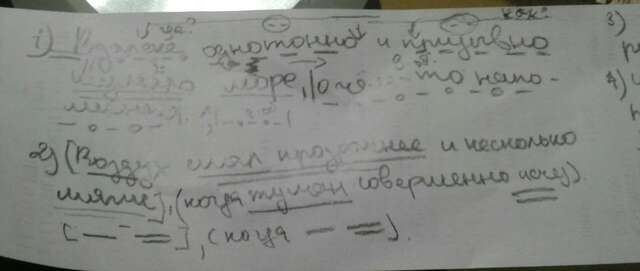 как?
1) Вдалеке однотонно и призывно
шумело море, о чё то напо-
2) [Воздух стал прозрачнее и несколько
мягче], (когда туман совершенно исчез).
[— =], (когда — =).
3)
4)